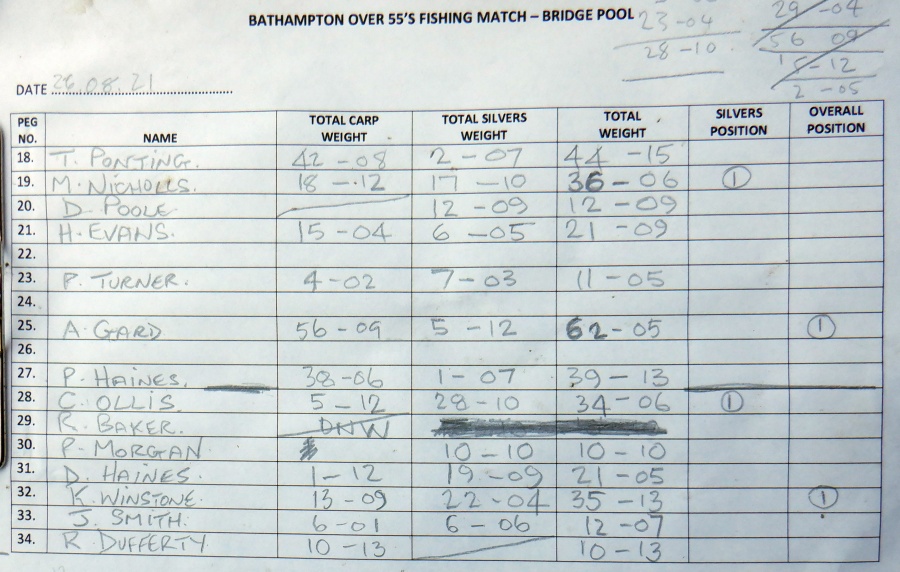 BATHAMPTON OVER 55'S FISHING MATCH – BRIDGE POOL
23-04
28-10
29-04
56 09
15-12
2-05
DATE 26.08.21
PEG NO. NAME TOTAL CARP WEIGHT TOTAL SILVERS WEIGHT TOTAL WEIGHT SILVERS POSITION OVERALL POSITION
18. T. PONTING. 42-08 2-07 44-15
19. M. NICHOLLS. 18-12 17-10 36-06 1
20. D. POOLE 12-09 12-09
21. H. EVANS. 15-04 6-05 21-09
22.
23. P. TURNER. 4-02 7-03 11-05
24.
25. A. GARD 56-09 5-12 62-05 1
26.
27. P. HAINES. 38-06 1-07 39-13
28. C. OLLIS. 5-12 28-10 34-06 1
29. R. BAKER. DNW
30. P. MORGAN 10-10 10-10
31. D. HAINES. 1-12 19-09 21-05
32. K. WINSTONE. 13-09 22-04 35-13 1
33. J. SMITH. 6-01 6-06 12-07
34. R DUFFERTY 10-13 10-13